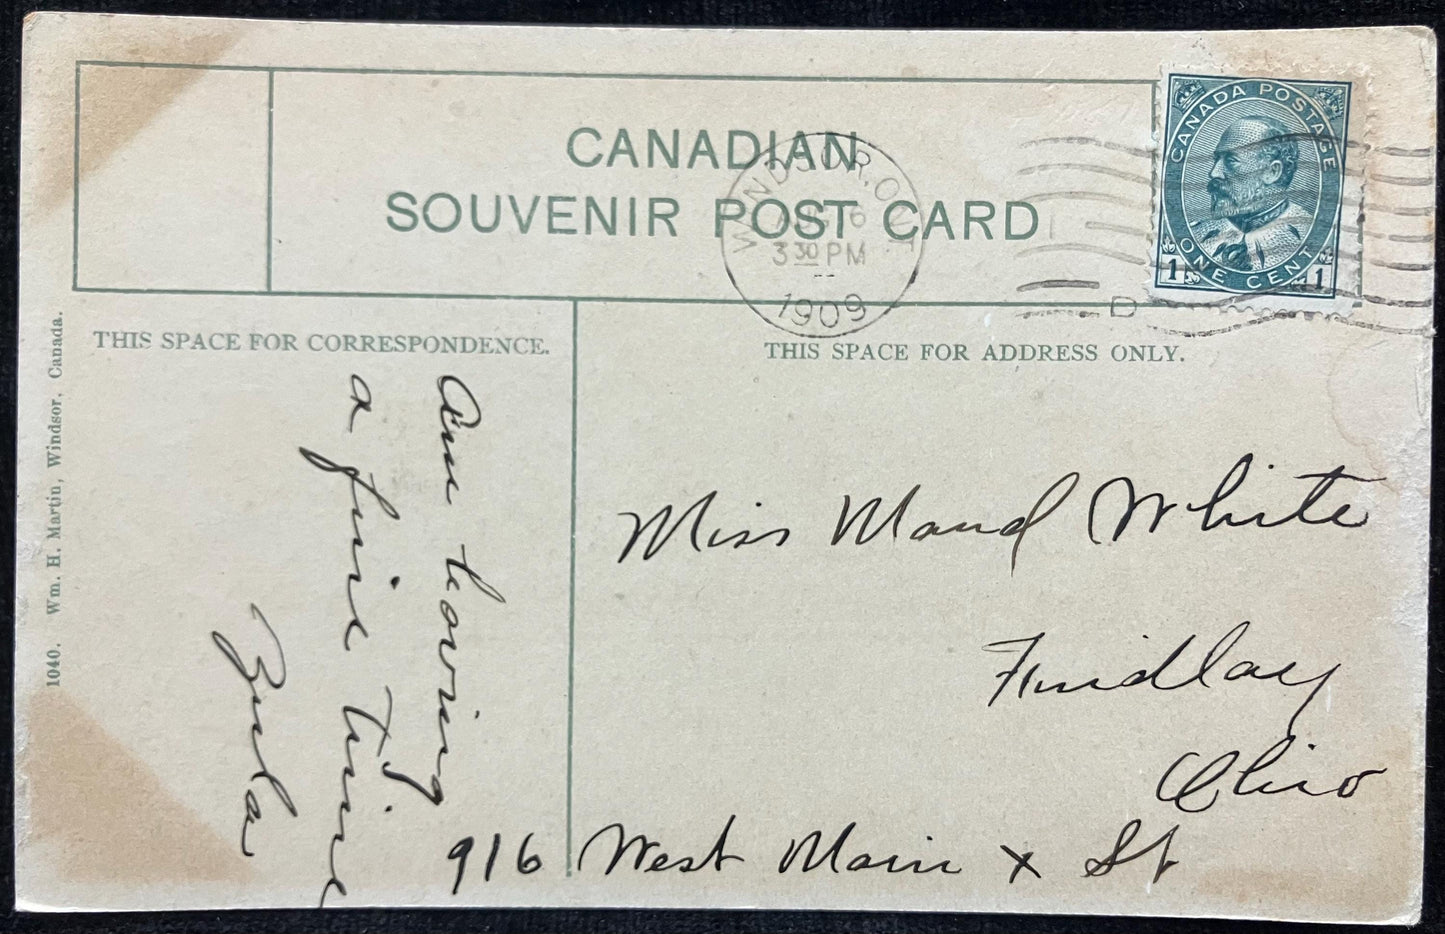 CANADIAN
SOUVENIR POST CARD
WINDSOR, ONT
3 30 PM
1909
D
CANADA POSTAGE
1 ONE CENT 1
THIS SPACE FOR CORRESPONDENCE.
THIS SPACE FOR ADDRESS ONLY.
Am having
a fine time
Zula
Miss Maud White
Findlay
Ohio
916 West Main x St
1040. Wm. H. Martin, Windsor, Canada.